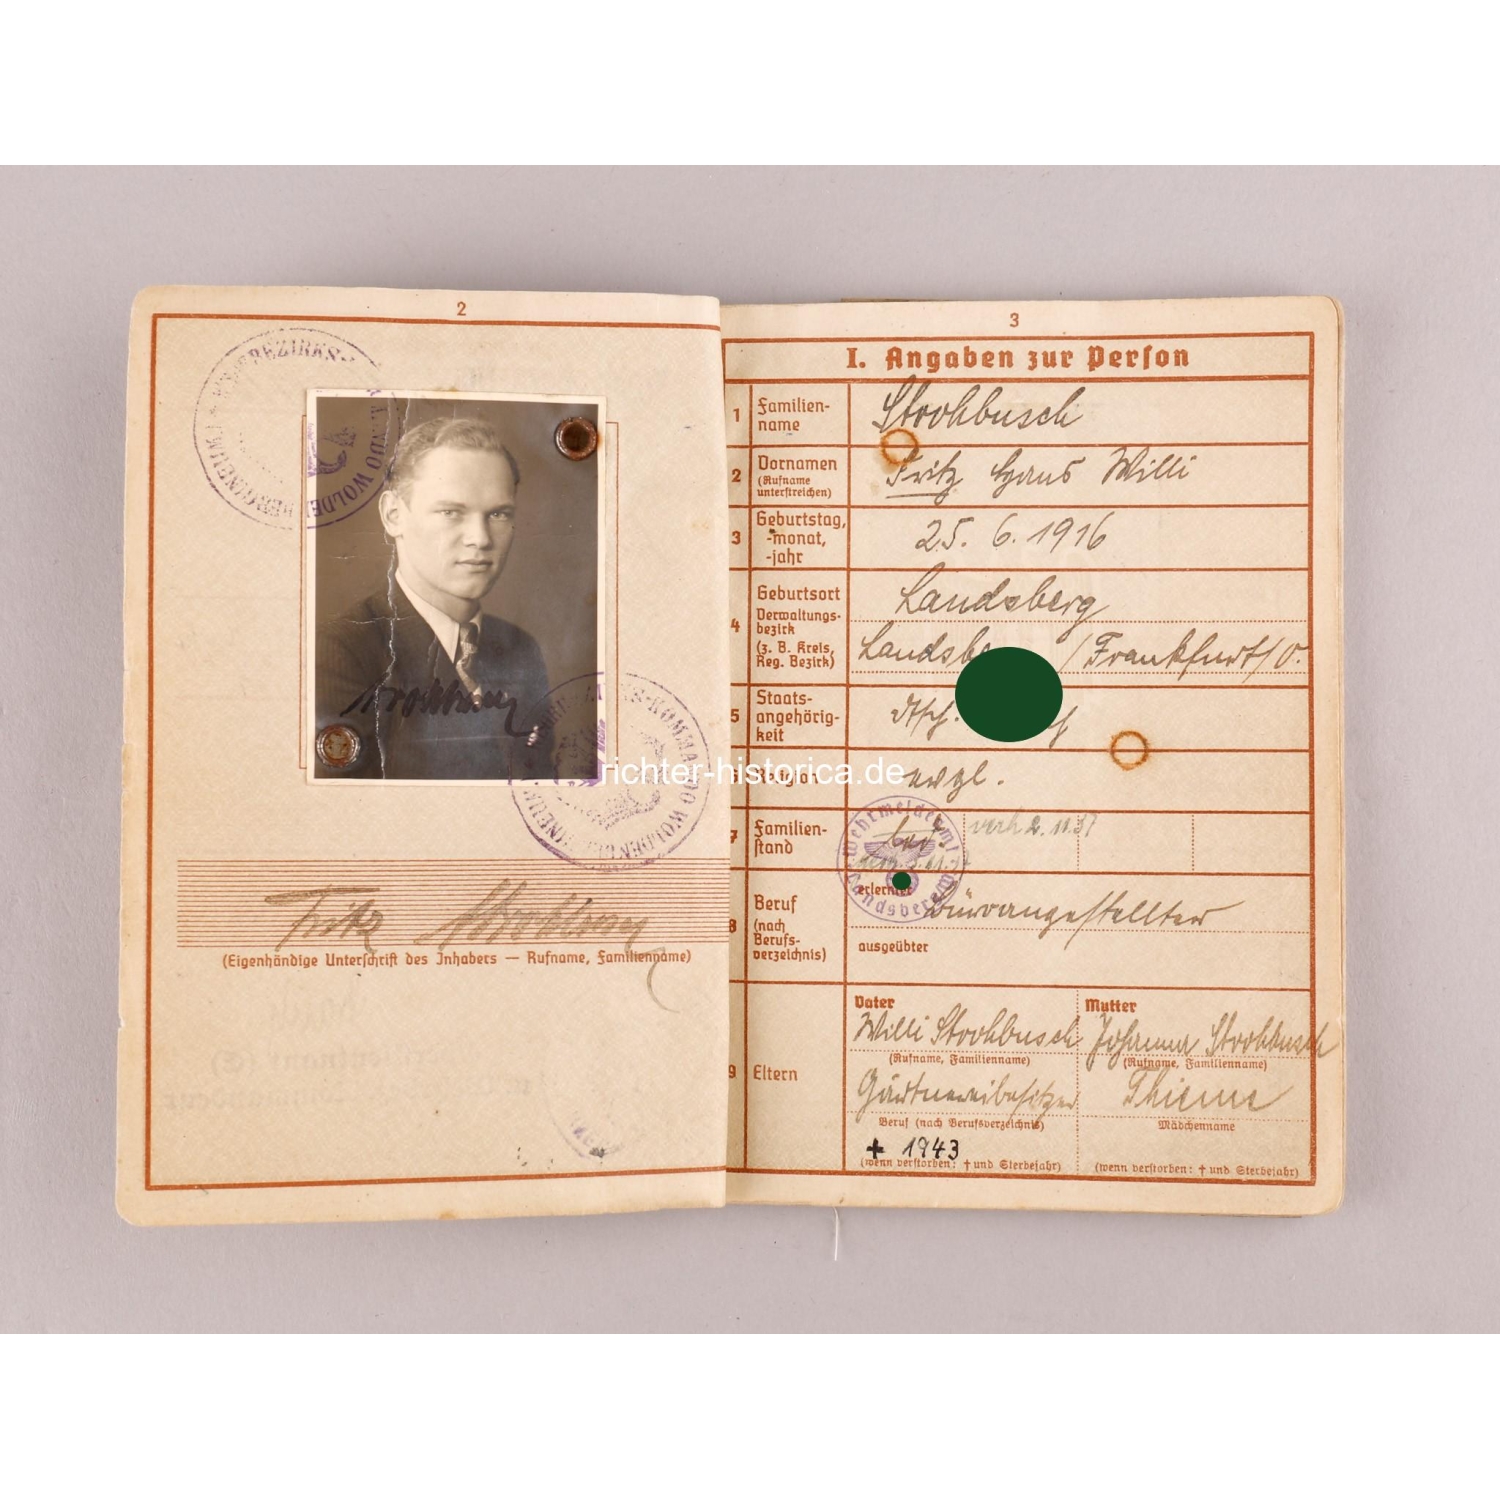 2
WEHRBEZIRKS-KOMMANDO WOLDENBERG (NEUM.)
Strohbusch
WEHRBEZIRKS-KOMMANDO WOLDENBERG (NEUM.)
Fritz Strohbusch
(Eigenhändige Unterschrift des Inhabers — Rufname, Familienname)
3
I. Angaben zur Person
1 Familien-
name
Strohbusch
2 Vornamen
(Rufname
unterstreichen)
Fritz Hans Willi
3 Geburtstag,
-monat,
-jahr
25. 6. 1916
4 Geburtsort
Verwaltungs-
bezirk
(z. B. Kreis,
Reg. Bezirk)
Landsberg
Landsbe /Frankfurt/O.
5 Staats-
angehörig-
keit
dtsch.
6 Religion
evgl.
richter-historica.de
7 Familien-
stand
led. verh. 2. 11. 37
Wehrmeldeamt Landsberg
8 Beruf
(nach
Berufs-
verzeichnis)
erlernter
Büroangestellter
ausgeübter
9 Eltern
Vater
Willi Strohbusch
(Rufname, Familienname)
Gärtnereibesitzer
Beruf (nach Berufsverzeichnis)
+ 1943
(wenn verstorben: † und Sterbejahr)
Mutter
Johanna Strohbusch
(Rufname, Familienname)
Thieme
Mädchenname
(wenn verstorben: † und Sterbejahr)